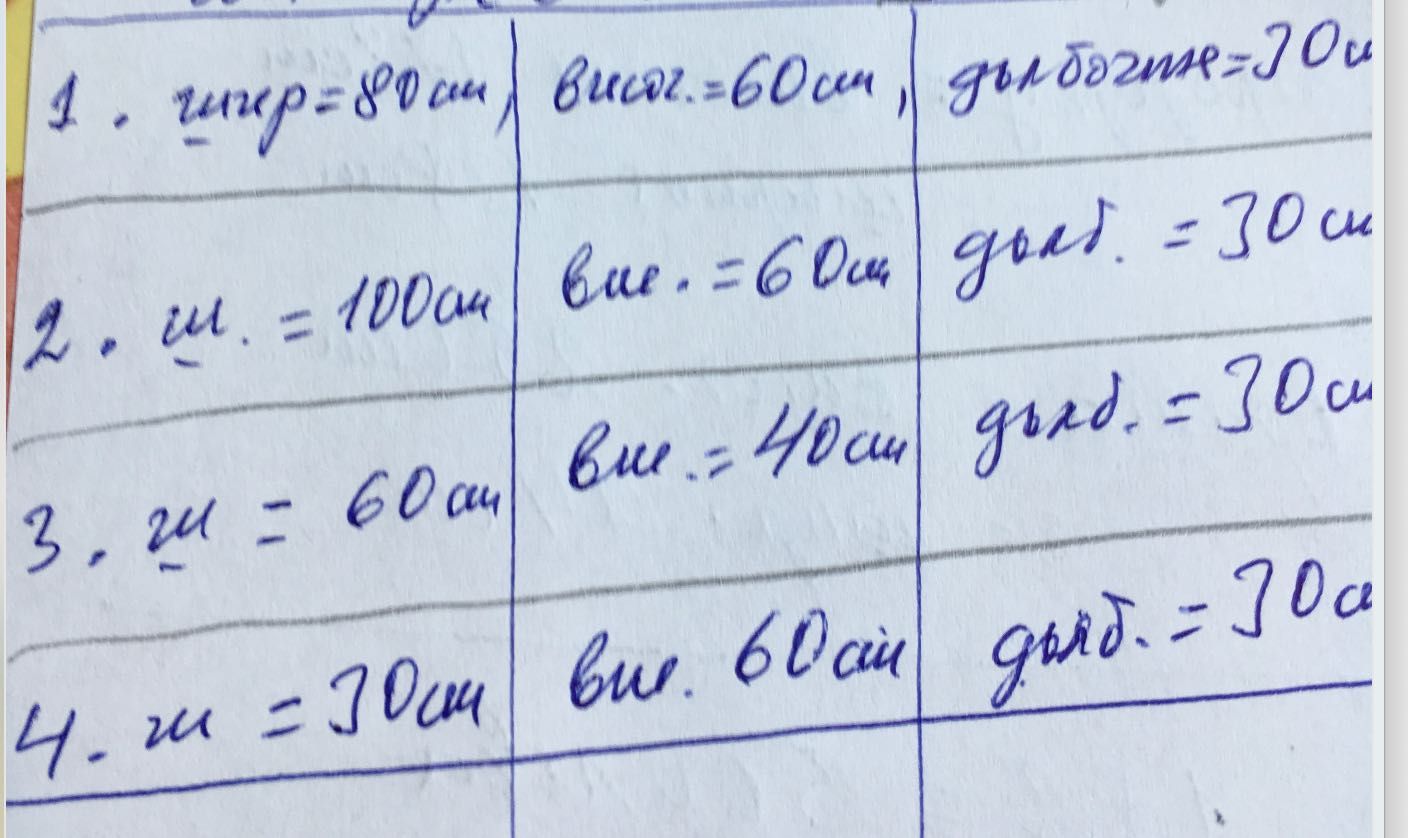 1. шир=80см, височ.=60см, дълбочине=30см
2. ш. = 100см вис. =60см дълб. = 30см
3. ш = 60см вис. = 40см дълб. = 30см
4. ш = 30см вис. 60см дълб. = 30см